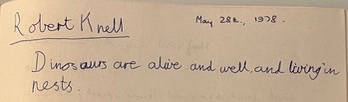 Robert Knell
May 28t., 1978.
Dinosaurs are alive and well, and living in
nests.